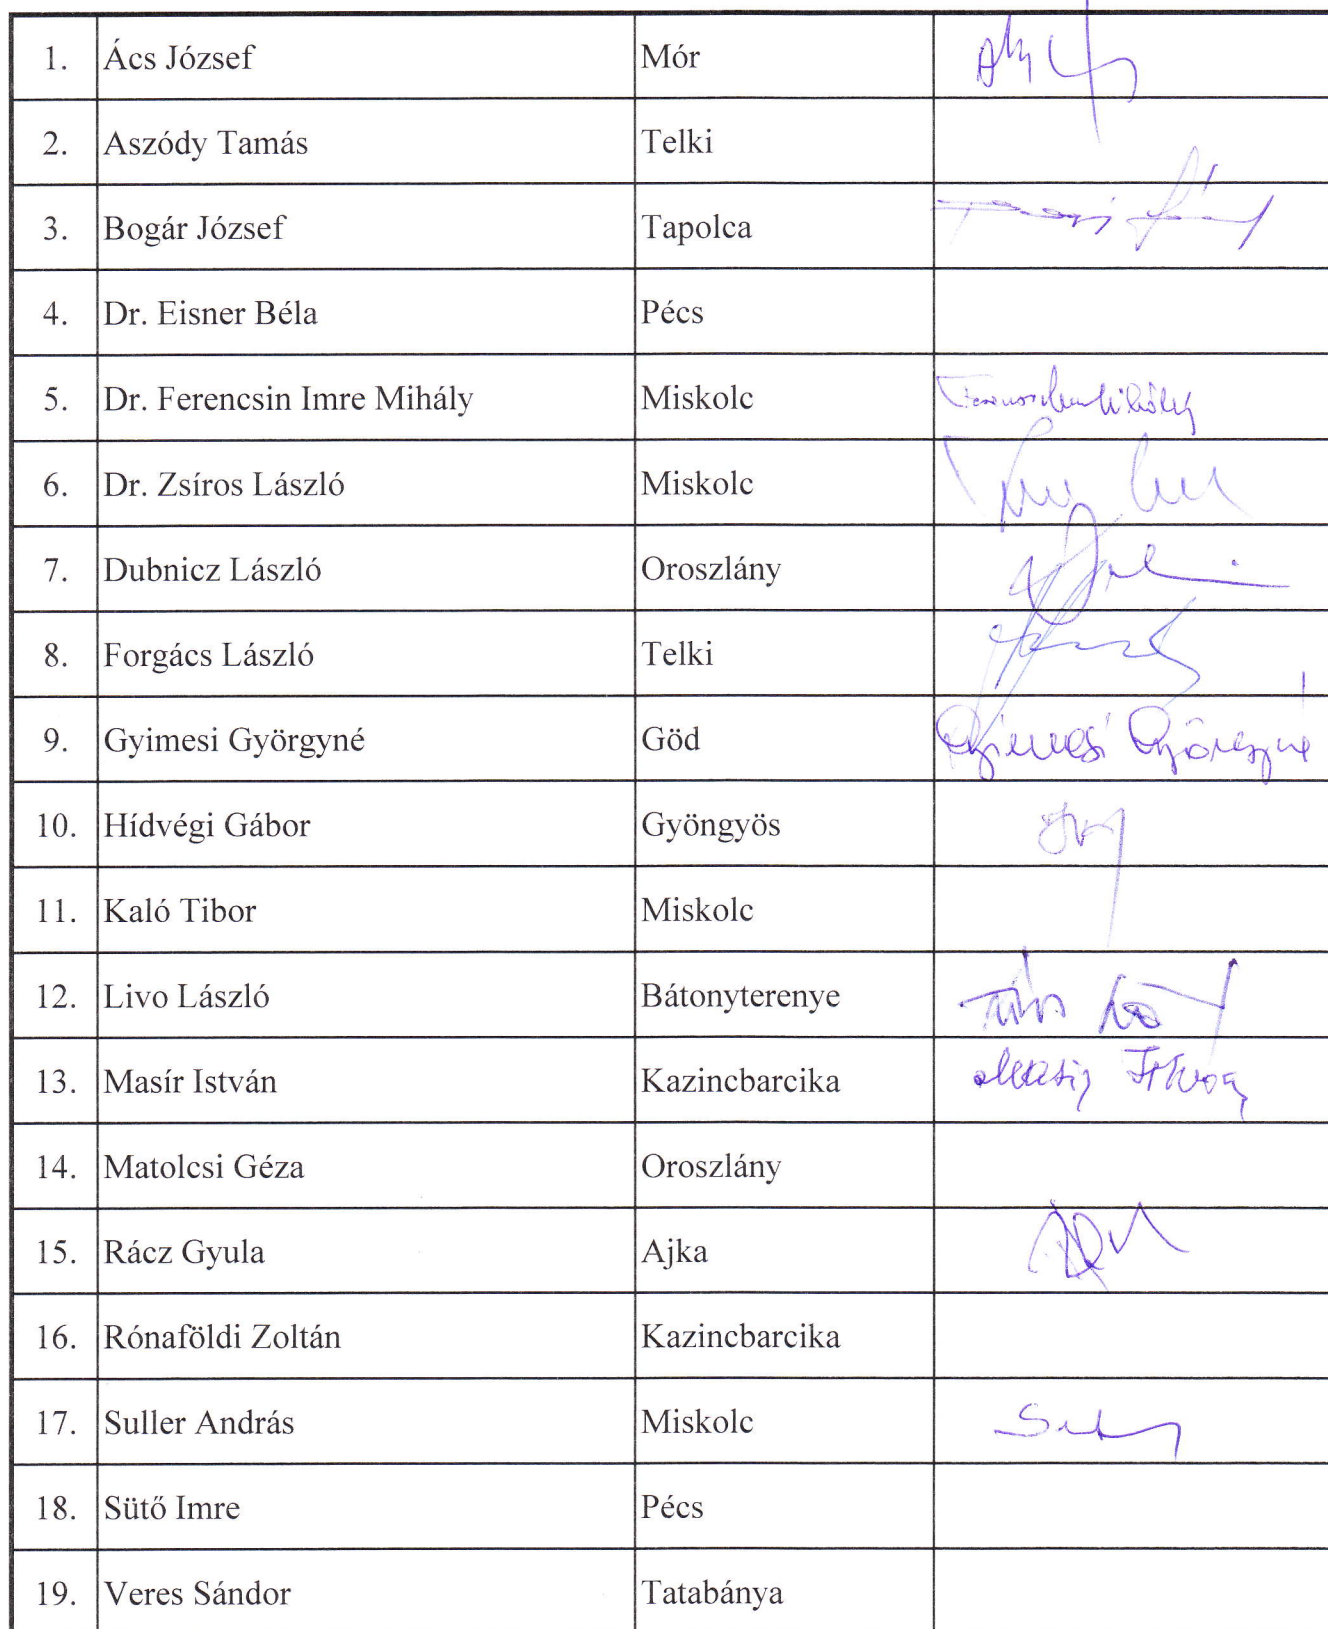 1. Ács József Mór
2. Aszódy Tamás Telki
3. Bogár József Tapolca
4. Dr. Eisner Béla Pécs
5. Dr. Ferencsin Imre Mihály Miskolc
6. Dr. Zsíros László Miskolc
7. Dubnicz László Oroszlány
8. Forgács László Telki
9. Gyimesi Györgyné Göd Gyimesi Györgyné
10. Hídvégi Gábor Gyöngyös
11. Kaló Tibor Miskolc
12. Livo László Bátonyterenye
13. Masír István Kazincbarcika Masír István
14. Matolcsi Géza Oroszlány
15. Rácz Gyula Ajka
16. Rónaföldi Zoltán Kazincbarcika
17. Suller András Miskolc
18. Sütő Imre Pécs
19. Veres Sándor Tatabánya